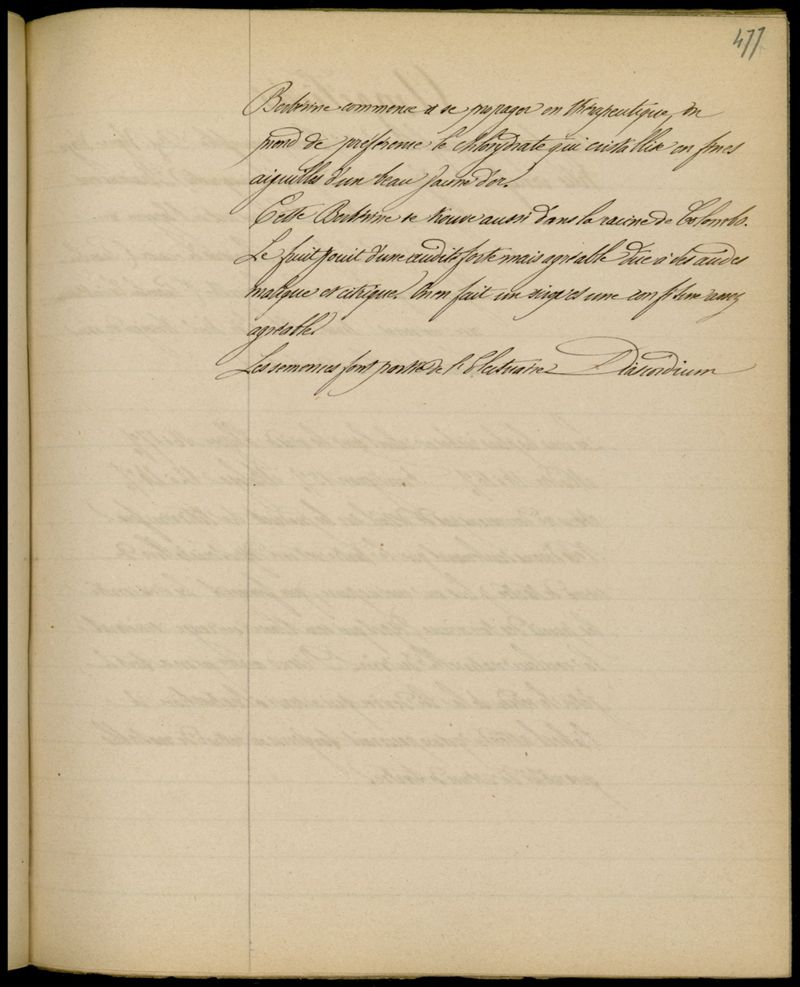 477
Berbérine commence à se propager en thérapeutique, on
prend de préférence le chlorydrate qui cristallise en fines
aiguilles d'un beau jaune d'or.
Cette Berbérine se trouve aussi dans la racine de Colombo.
Le fruit jouit d'une acidité forte mais agréable due à des acides
malique et citrique. On en fait un sirop et une confiture assez
agréable.
Les semences font partie de l'Electuaire Diascordium